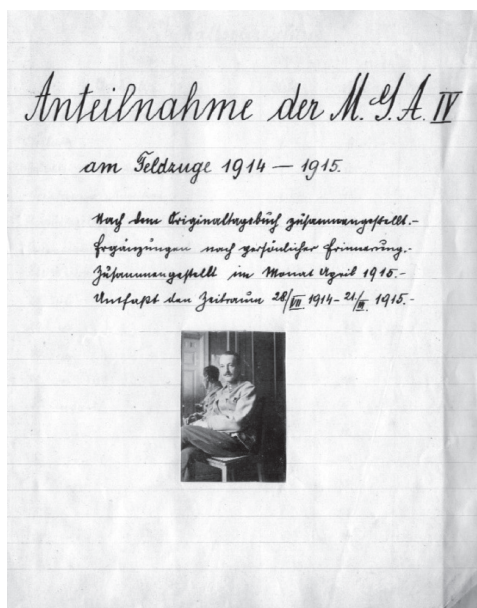 Anteilnahme der M. G. A. IV
am Feldzuge 1914 — 1915.
Nach dem Originaltagebuch zusammengestellt.-
Ergänzungen nach persönlicher Erinnerung.-
Zusammengestellt im Monat April 1915.-
Umfaßt den Zeitraum 28/VII 1914 - 21/III 1915.-